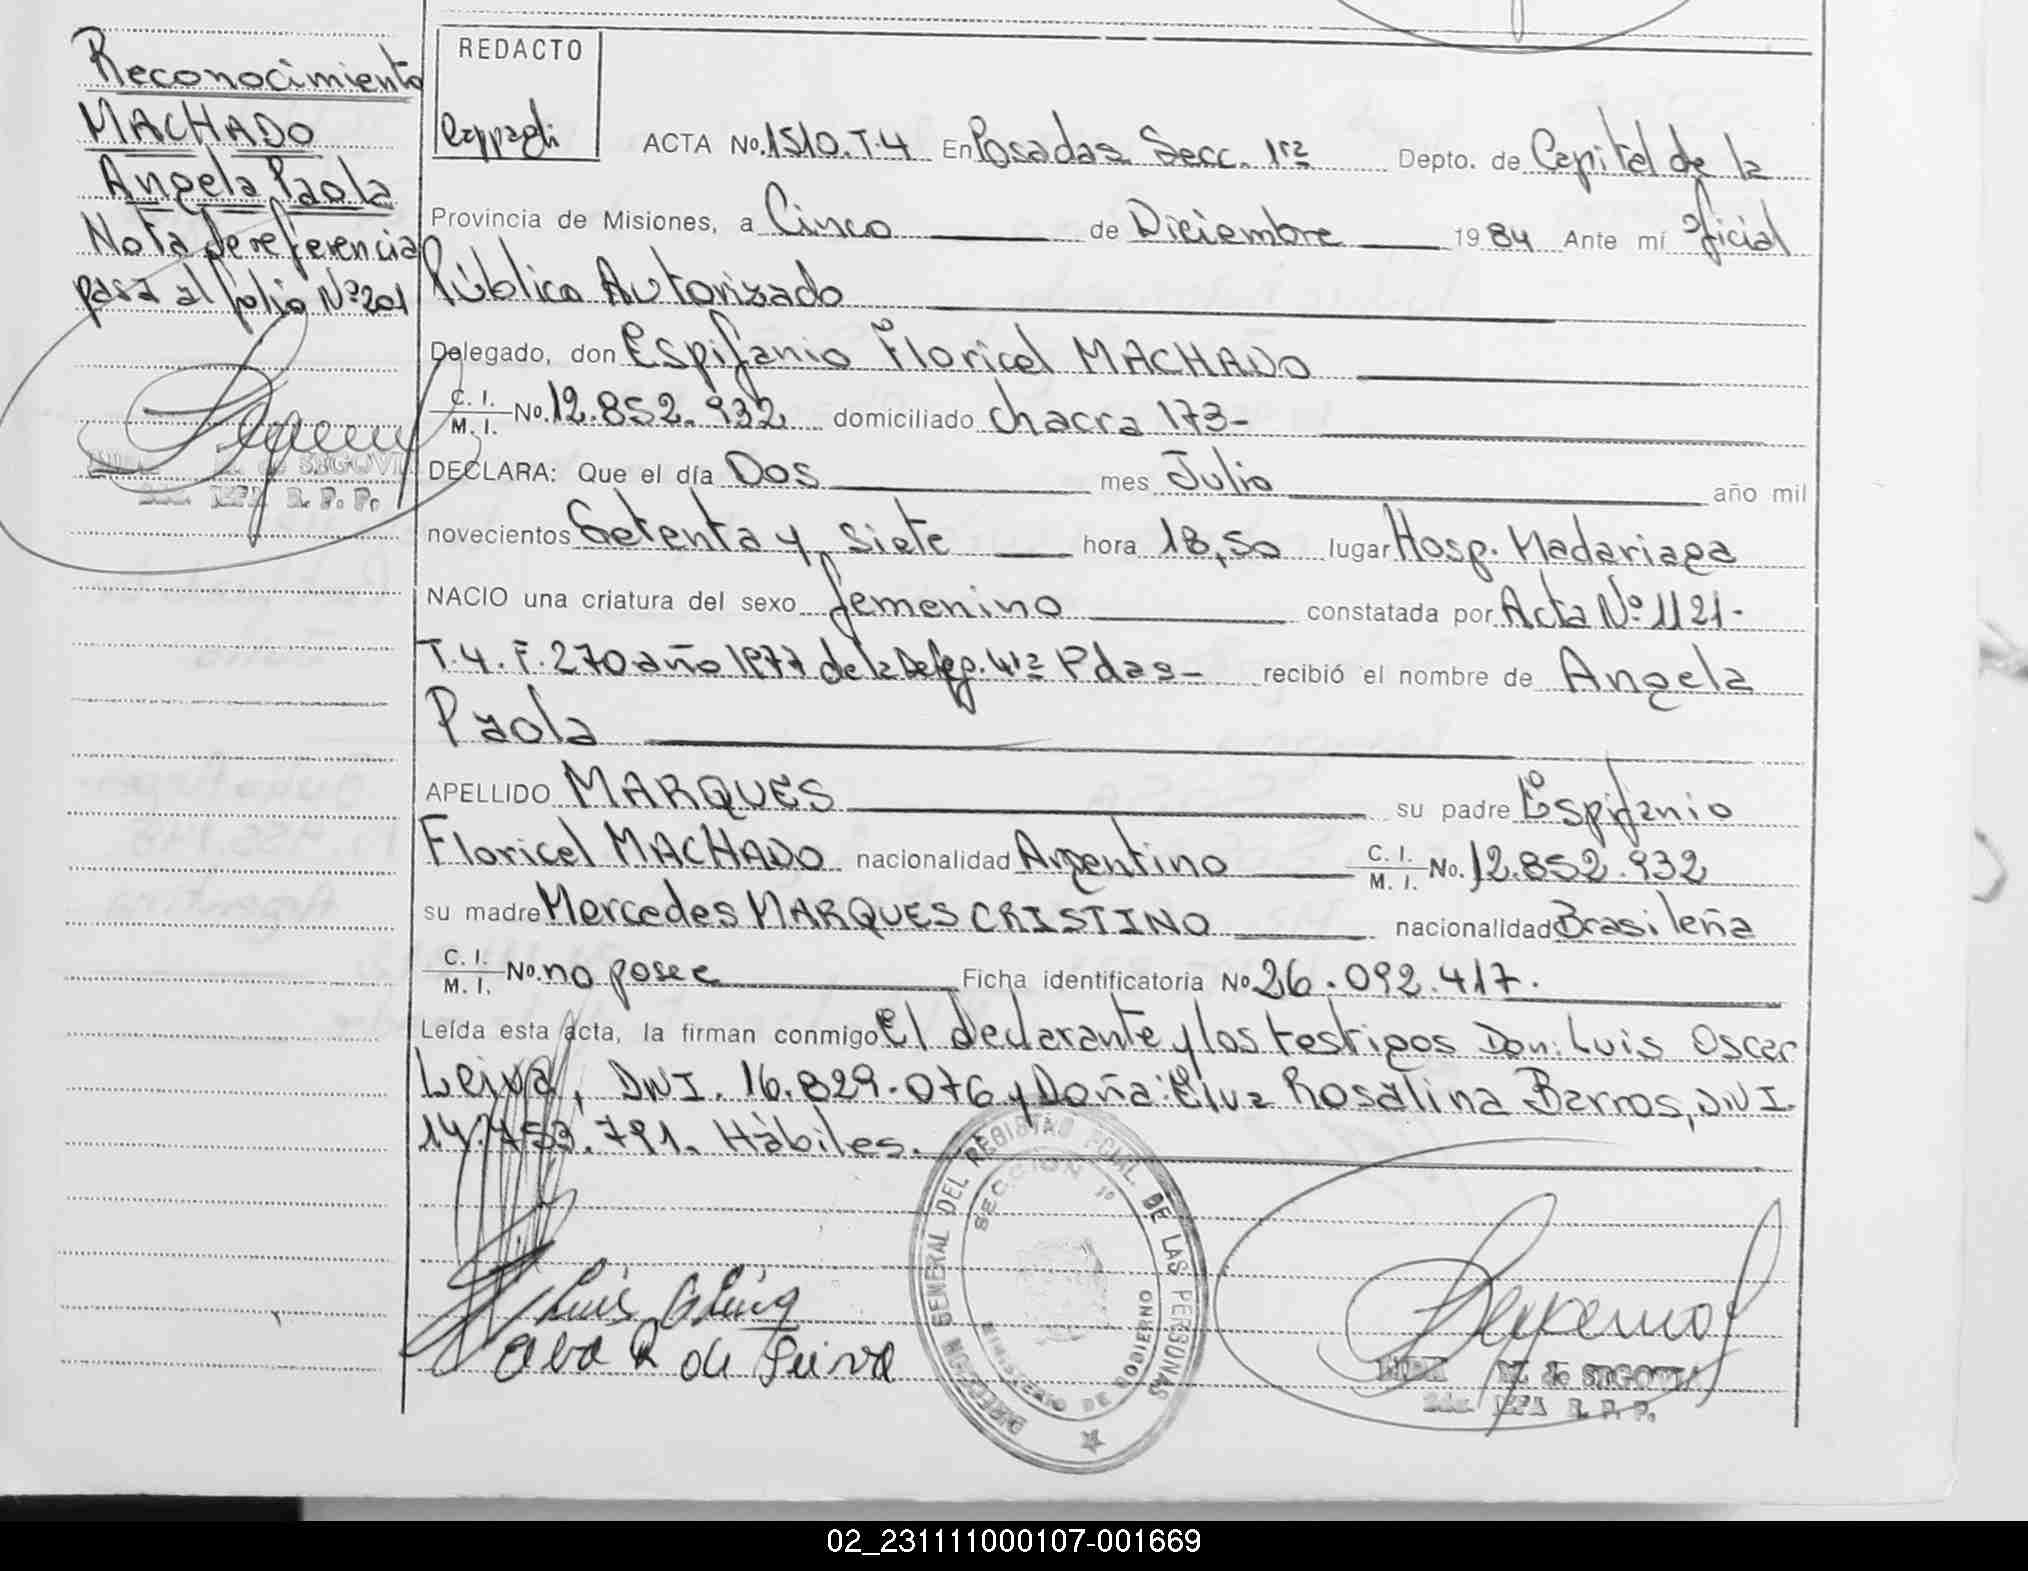 Reconocimiento
MACHADO
Angela Paola
Nota de referencia
pasa al folio Nº 201
M. de SEGOVIA
R. P. P.
REDACTO
ACTA No. 1510. T. 4 En Posadas Secc. 1ra Depto. de Capital de la
Provincia de Misiones, a Cinco de Diciembre 19 84 Ante mí Oficial
Público Autorizado
Delegado, don Espifanio Floricel MACHADO
C. I. M. I. No. 12.852.932 domiciliado chacra 173-
DECLARA: Que el día Dos mes Julio año mil
novecientos Setenta y siete hora 18,50 lugar Hosp. Madariaga
NACIO una criatura del sexo femenino constatada por Acta Nº 1121-
T. 4. F. 270 año 1977 de la Deleg. 4ta Pdas- recibió el nombre de Angela
Paola
APELLIDO MARQUES su padre Espifanio
Floricel MACHADO nacionalidad Argentino C. I. M. I. No. 12.852.932
su madre Mercedes MARQUES CRISTINO nacionalidad Brasileña
C. I. M. I. No. no posee Ficha identificatoria No 26.092.417.
Leída esta acta, la firman conmigo El declarante y los testigos Don: Luis Oscar
Leiva, DNI. 16.829.076 y Doña: Elva Rosalina Barros, DNI.
14.753.791. Hàbiles.
Luis O Leiva
Elva R de Leiva
DIRECCION GENERAL DEL REGISTRO PCIAL. DE LAS PERSONAS
SECCION 1º
MINISTERIO DE GOBIERNO
M. de SEGOVIA
R. P. P.
02_231111000107-001669